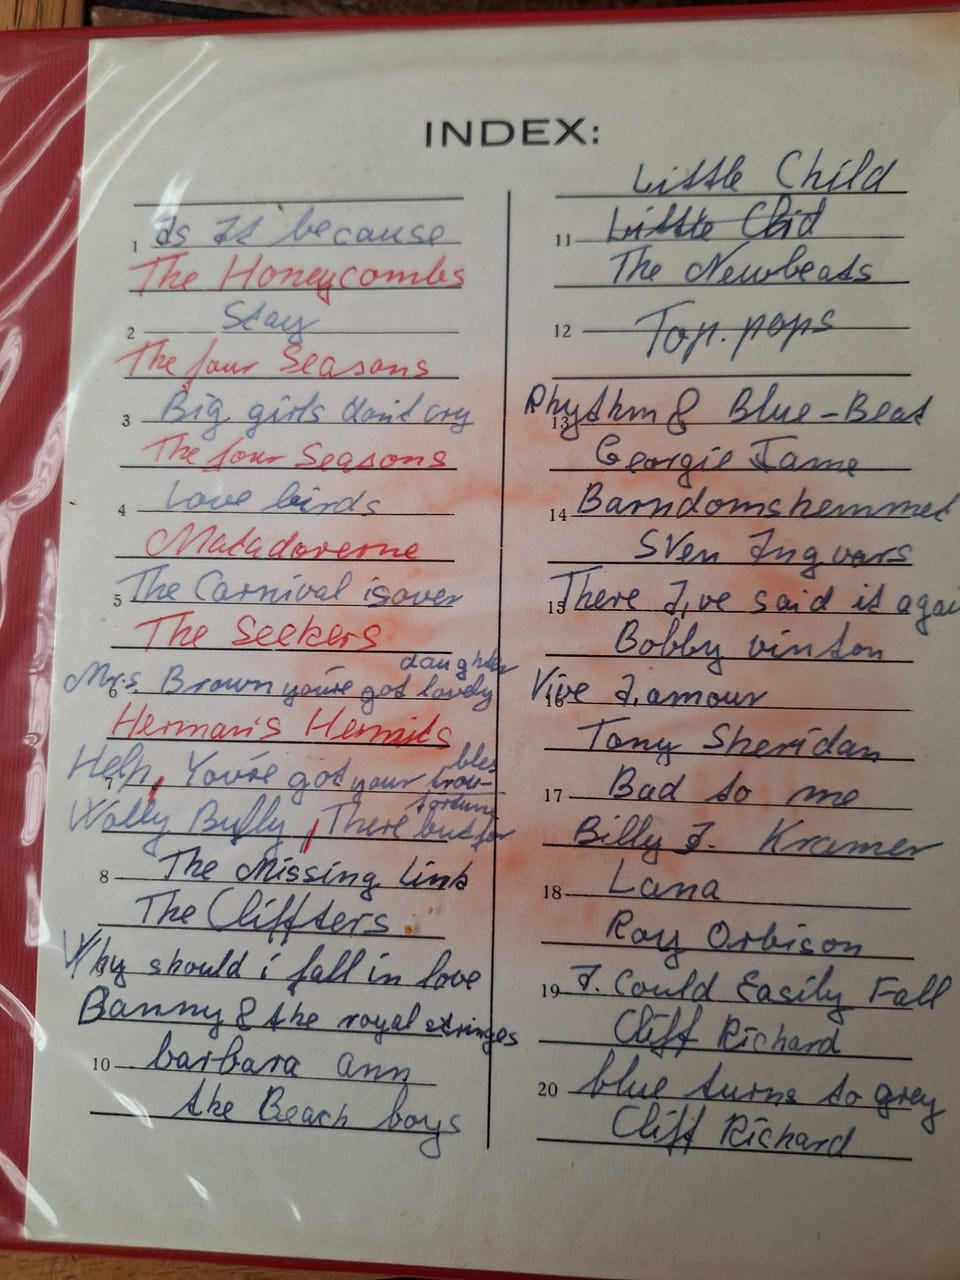 INDEX:
1 Is It because
The Honeycombs
2 Stay
The four Seasons
3 Big girls don't cry
The four Seasons
4 Love birds
Matadorerne
5 The Carnival is over
The Seekers
daughter
6 Mrs. Brown you're got lovely
Herman's Hermits
bles
7 Help, You're got your trou-
fortune
Wolly Bully, There but for
8 The Missing Link
The Cliffters
9 Why should i fall in love
Banny & the royal stringes
10 barbara ann
the Beach boys
Little Child
11 Little Clid
The Newbeats
12 Top. pops
13 Rhythm & Blue-Beat
Georgie Fame
14 Barndomshemmet
Sven Ingvars
15 There I,ve said it again
Bobby vinton
16 Vive L,amour
Tony Sheridan
17 Bad to me
Billy J. Kramer
18 Lana
Roy Orbison
19 I. Could Easily Fall
Cliff Richard
20 blue turns to grey
Cliff Richard